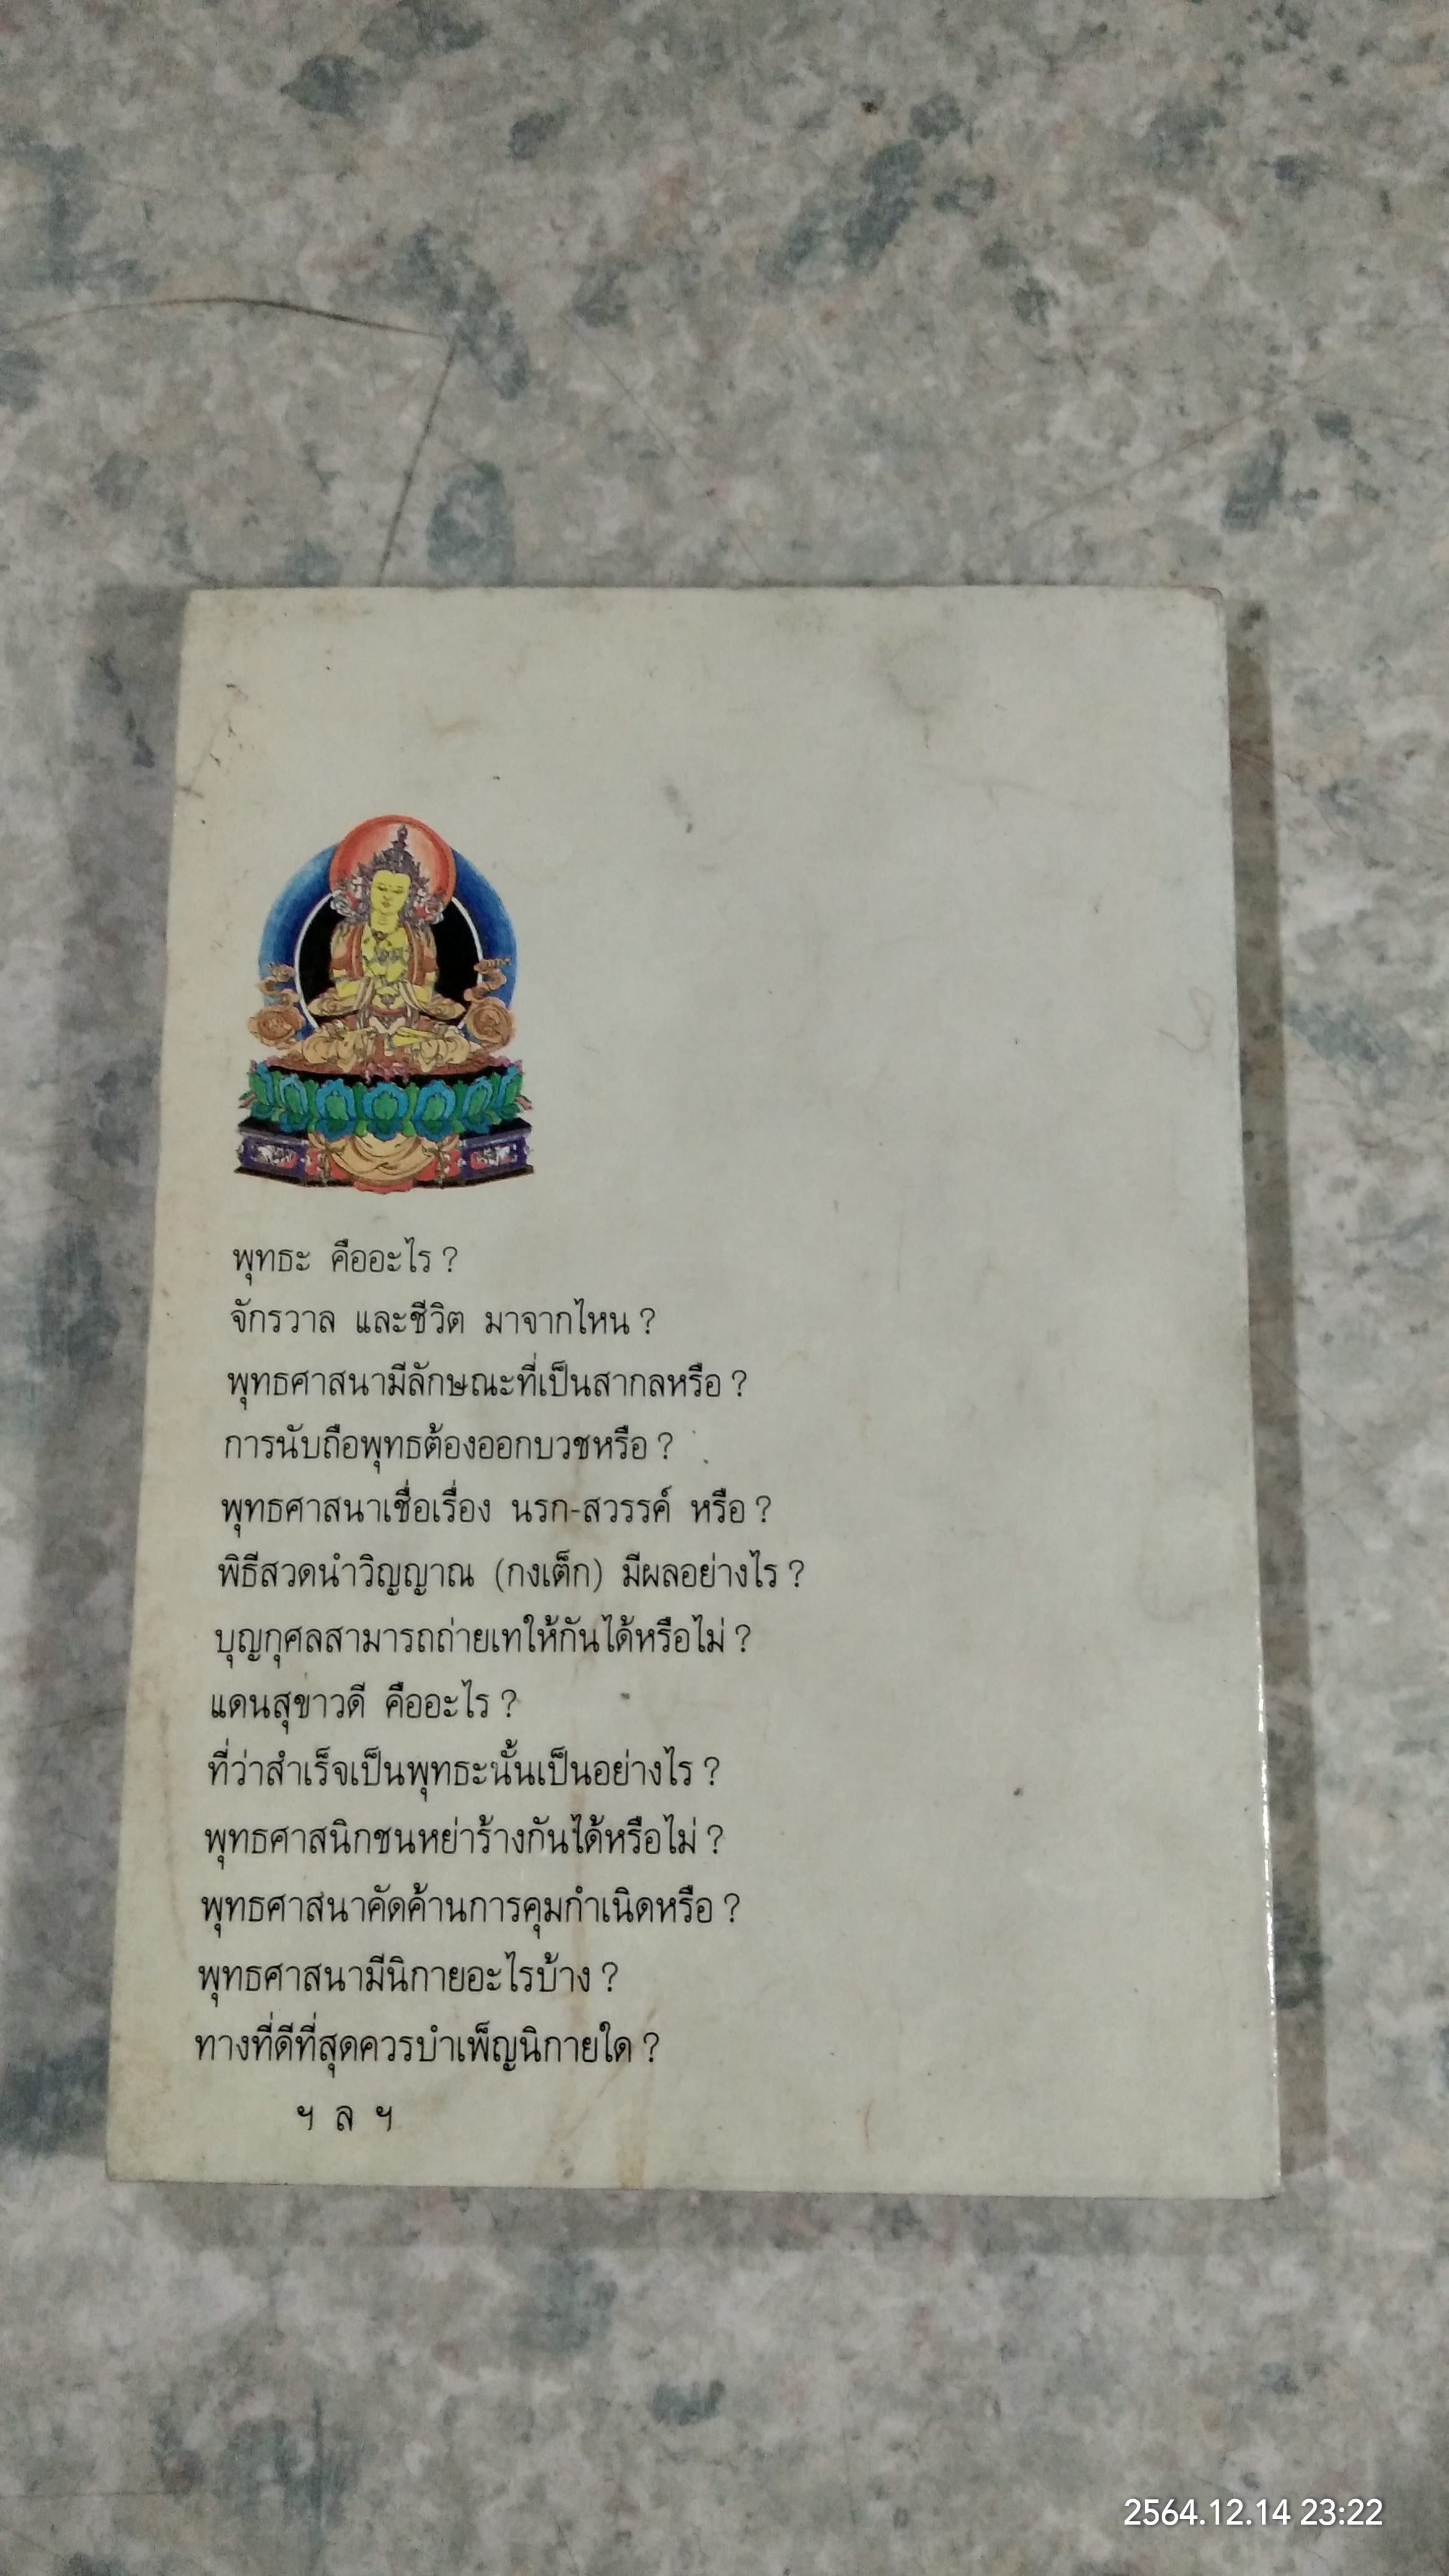 พุทธะ คืออะไร ?
จักรวาล และชีวิต มาจากไหน ?
พุทธศาสนามีลักษณะที่เป็นสากลหรือ ?
การนับถือพุทธต้องออกบวชหรือ ?
พุทธศาสนาเชื่อเรื่อง นรก-สวรรค์ หรือ ?
พิธีสวดนำวิญญาณ (กงเต็ก) มีผลอย่างไร ?
บุญกุศลสามารถถ่ายเทให้กันได้หรือไม่ ?
แดนสุขาวดี คืออะไร ?
ที่ว่าสำเร็จเป็นพุทธะนั้นเป็นอย่างไร ?
พุทธศาสนิกชนหย่าร้างกันได้หรือไม่ ?
พุทธศาสนาคัดค้านการคุมกำเนิดหรือ ?
พุทธศาสนามีนิกายอะไรบ้าง ?
ทางที่ดีที่สุดควรบำเพ็ญนิกายใด ?
ฯ ล ฯ
2564.12.14 23:22